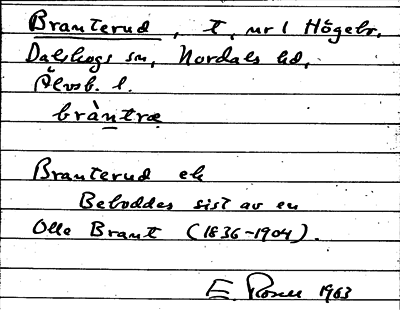 Branterud, t, nr 1 Högebr.
Dalskogs sn, Nordals hd,
Älvsb. l.
bràntræ
Branterud ek
Beboddes sist av en
Olle Brant (1836-1904).
E. Rosell 1963